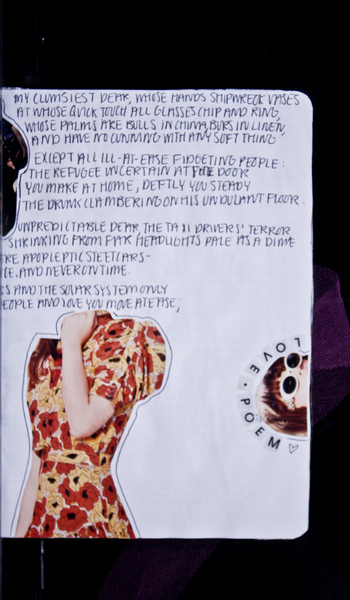 MY CLUMSIEST DEAR, WHOSE HANDS SHIPWRECK VASES
AT WHOSE QUICK TOUCH ALL GLASSES CHIP AND RING,
WHOSE PALMS ARE BULLS IN CHINA, BURS IN LINEN,
AND HAVE NO CUNNING WITH ANY SOFT THING
EXCEPT ALL ILL-AT-EASE FIDGETING PEOPLE:
THE REFUGEE UNCERTAIN AT THE DOOR
YOU MAKE AT HOME; DEFTLY YOU STEADY
THE DRUNK CLAMBERING ON HIS UNDULANT FLOOR.
UNPREDICTABLE DEAR, THE TAXI DRIVERS' TERROR
SHRINKING FROM FAR HEADLIGHTS PALE AS A DIME
RE APOPLEPTIC STEETCARS-
CE, AND NEVER ON TIME.
S AND THE SOLAR SYSTEM ONLY
EOPLE AND LOVE YOU MOVE AT EASE,
LOVE · POEM